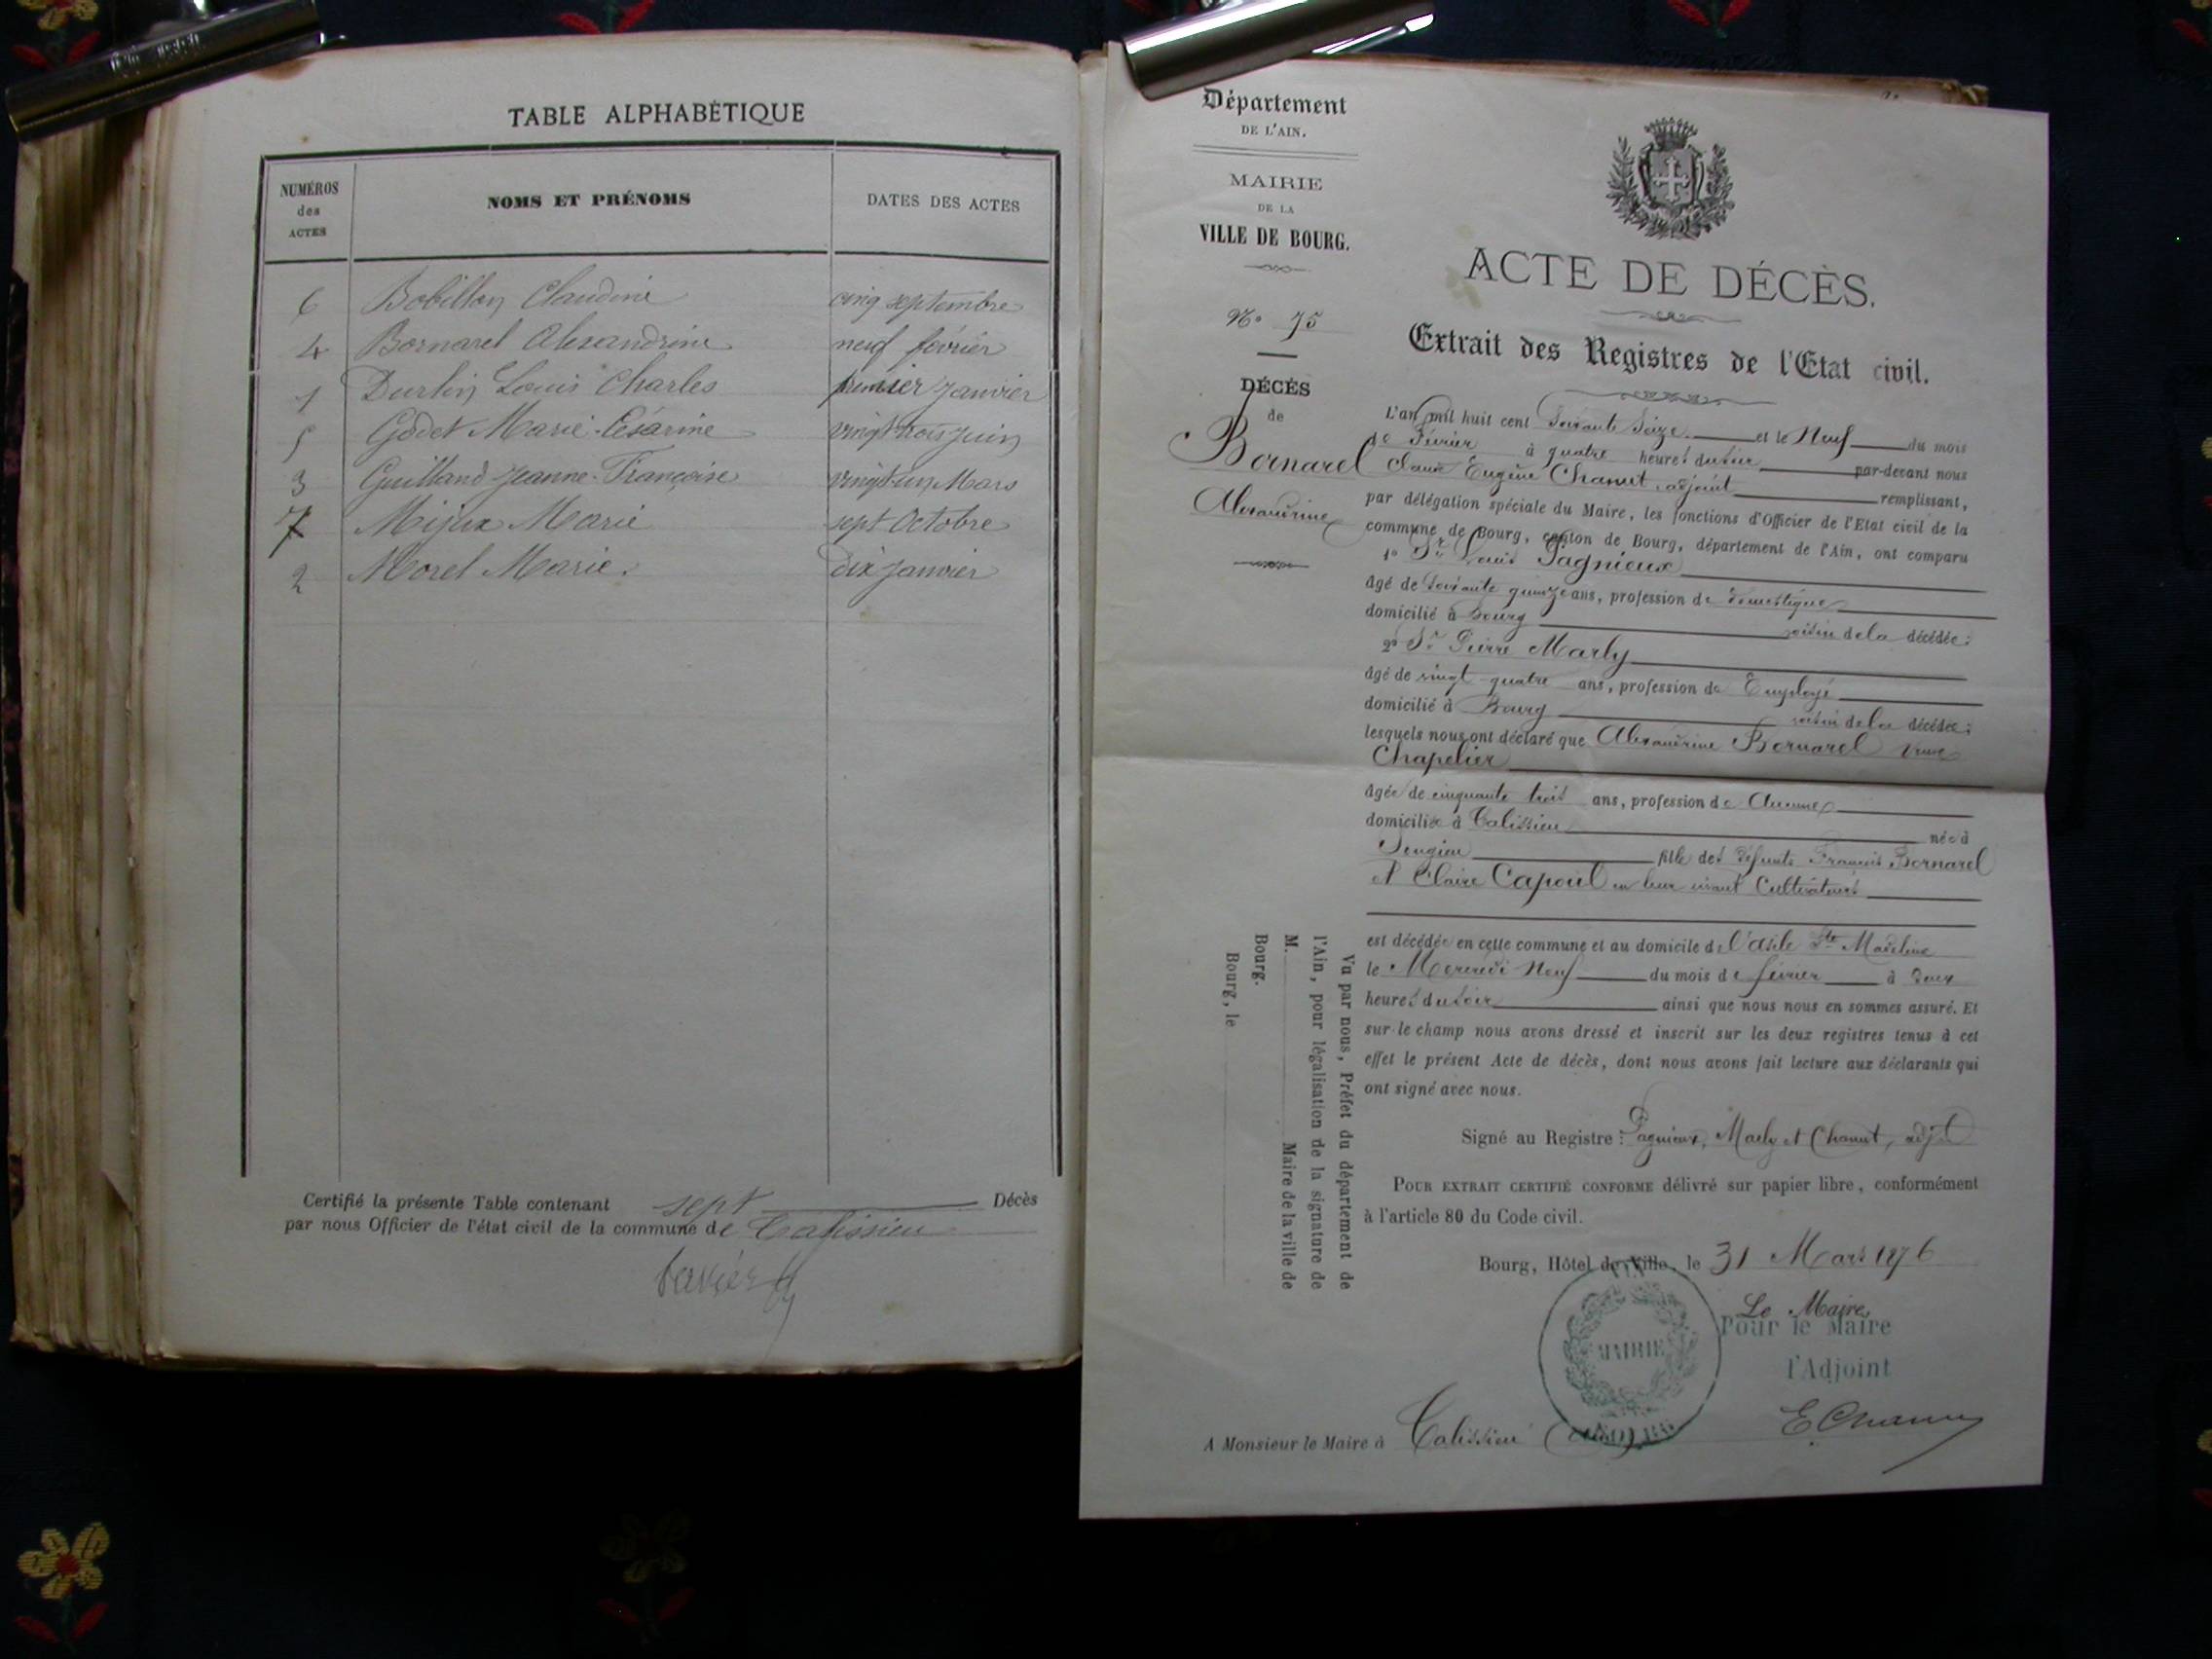 TABLE ALPHABÉTIQUE
NUMÉROS des ACTES NOMS ET PRÉNOMS DATES DES ACTES
6 Bobillon Claudine cinq septembre
4 Bornarel Alexandrine neuf février
1 Durlin Louis Charles premier janvier
5 Godet Marie-Césarine vingt trois juin
3 Guilland Jeanne-Françoise vingt-un Mars
7 Mijux Marie sept Octobre
2 Morel Marie. dix janvier
Certifié la présente Table contenant sept Décès
par nous Officier de l'état civil de la commune de Talissieu
Département
DE L'AIN.
MAIRIE
DE LA
VILLE DE BOURG.
N° 75
DÉCÈS
de
Bornarel
Alexandrine
ACTE DE DÉCÈS.
Extrait des Registres de l'Etat civil.
L'an mil huit cent Soixante Seize et le Neuf du mois
de Février à quatre heures du soir par-devant nous
Claude Eugène Chanut, adjoint remplissant,
par délégation spéciale du Maire, les fonctions d'Officier de l'Etat civil de la
commune de Bourg, canton de Bourg, département de l'Ain, ont comparu
1° Sr Louis Pagnieux
âgé de soixante quinze ans, profession de domestique
domicilié à Bourg voisin de la décédée;
2° Sr Pierre Marly
âgé de vingt-quatre ans, profession de Employé
domicilié à Bourg voisin de la décédée;
lesquels nous ont déclaré que Alexandrine Bornarel veuve
Chapelier
âgée de cinquante trois ans, profession de Aucune
domiciliée à Talissieu née à
Songieu fille des défunts François Bornarel
et Claire Capoul en leur vivant Cultivateurs
est décédée en cette commune et au domicile de l'asile Ste Madeleine
le Mercredi Neuf du mois de février à deux
heures du soir ainsi que nous nous en sommes assuré. Et
sur-le champ nous avons dressé et inscrit sur les deux registres tenus à cet
effet le présent Acte de décès, dont nous avons fait lecture aux déclarants qui
ont signé avec nous.
Signé au Registre : Pagnieux, Marly et Chanut, adjt
POUR EXTRAIT CERTIFIÉ CONFORME délivré sur papier libre, conformément
à l'article 80 du Code civil.
Bourg, Hôtel de Ville, le 31 Mars 1876
Le Maire,
Pour le Maire
l'Adjoint
E. Chanut
MAIRIE
A Monsieur le Maire à Talissieu
Vu par nous, Préfet du département de
l'Ain, pour légalisation de la signature de
M. Maire de la ville de
Bourg.
Bourg, le